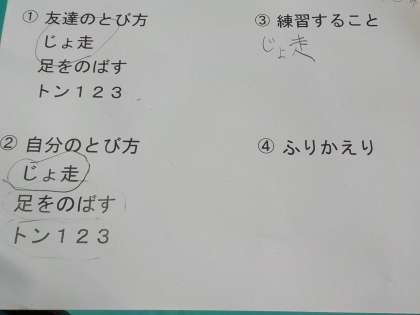 ① 友達のとび方
じょ走
足をのばす
トン１２３
② 自分のとび方
じょ走
足をのばす
トン１２３
③ 練習すること
じょ走
④ ふりかえり